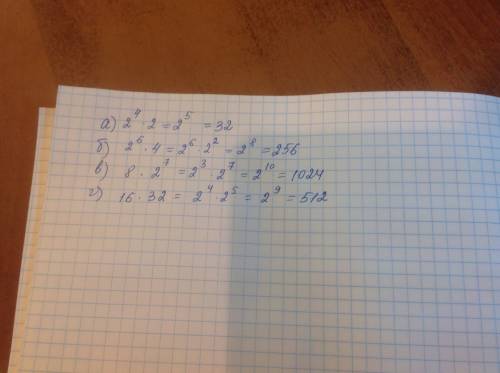 а) 2⁴ · 2 = 2⁵ = 32
б) 2⁶ · 4 = 2⁶ · 2² = 2⁸ = 256
в) 8 · 2⁷ = 2³ · 2⁷ = 2¹⁰ = 1024
г) 16 · 32 = 2⁴ · 2⁵ = 2⁹ = 512